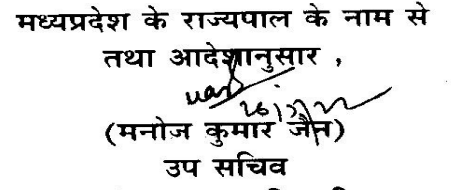 मध्यप्रदेश के राज्यपाल के नाम से
तथा आदेशानुसार ,
(मनोज कुमार जैन)
उप सचिव